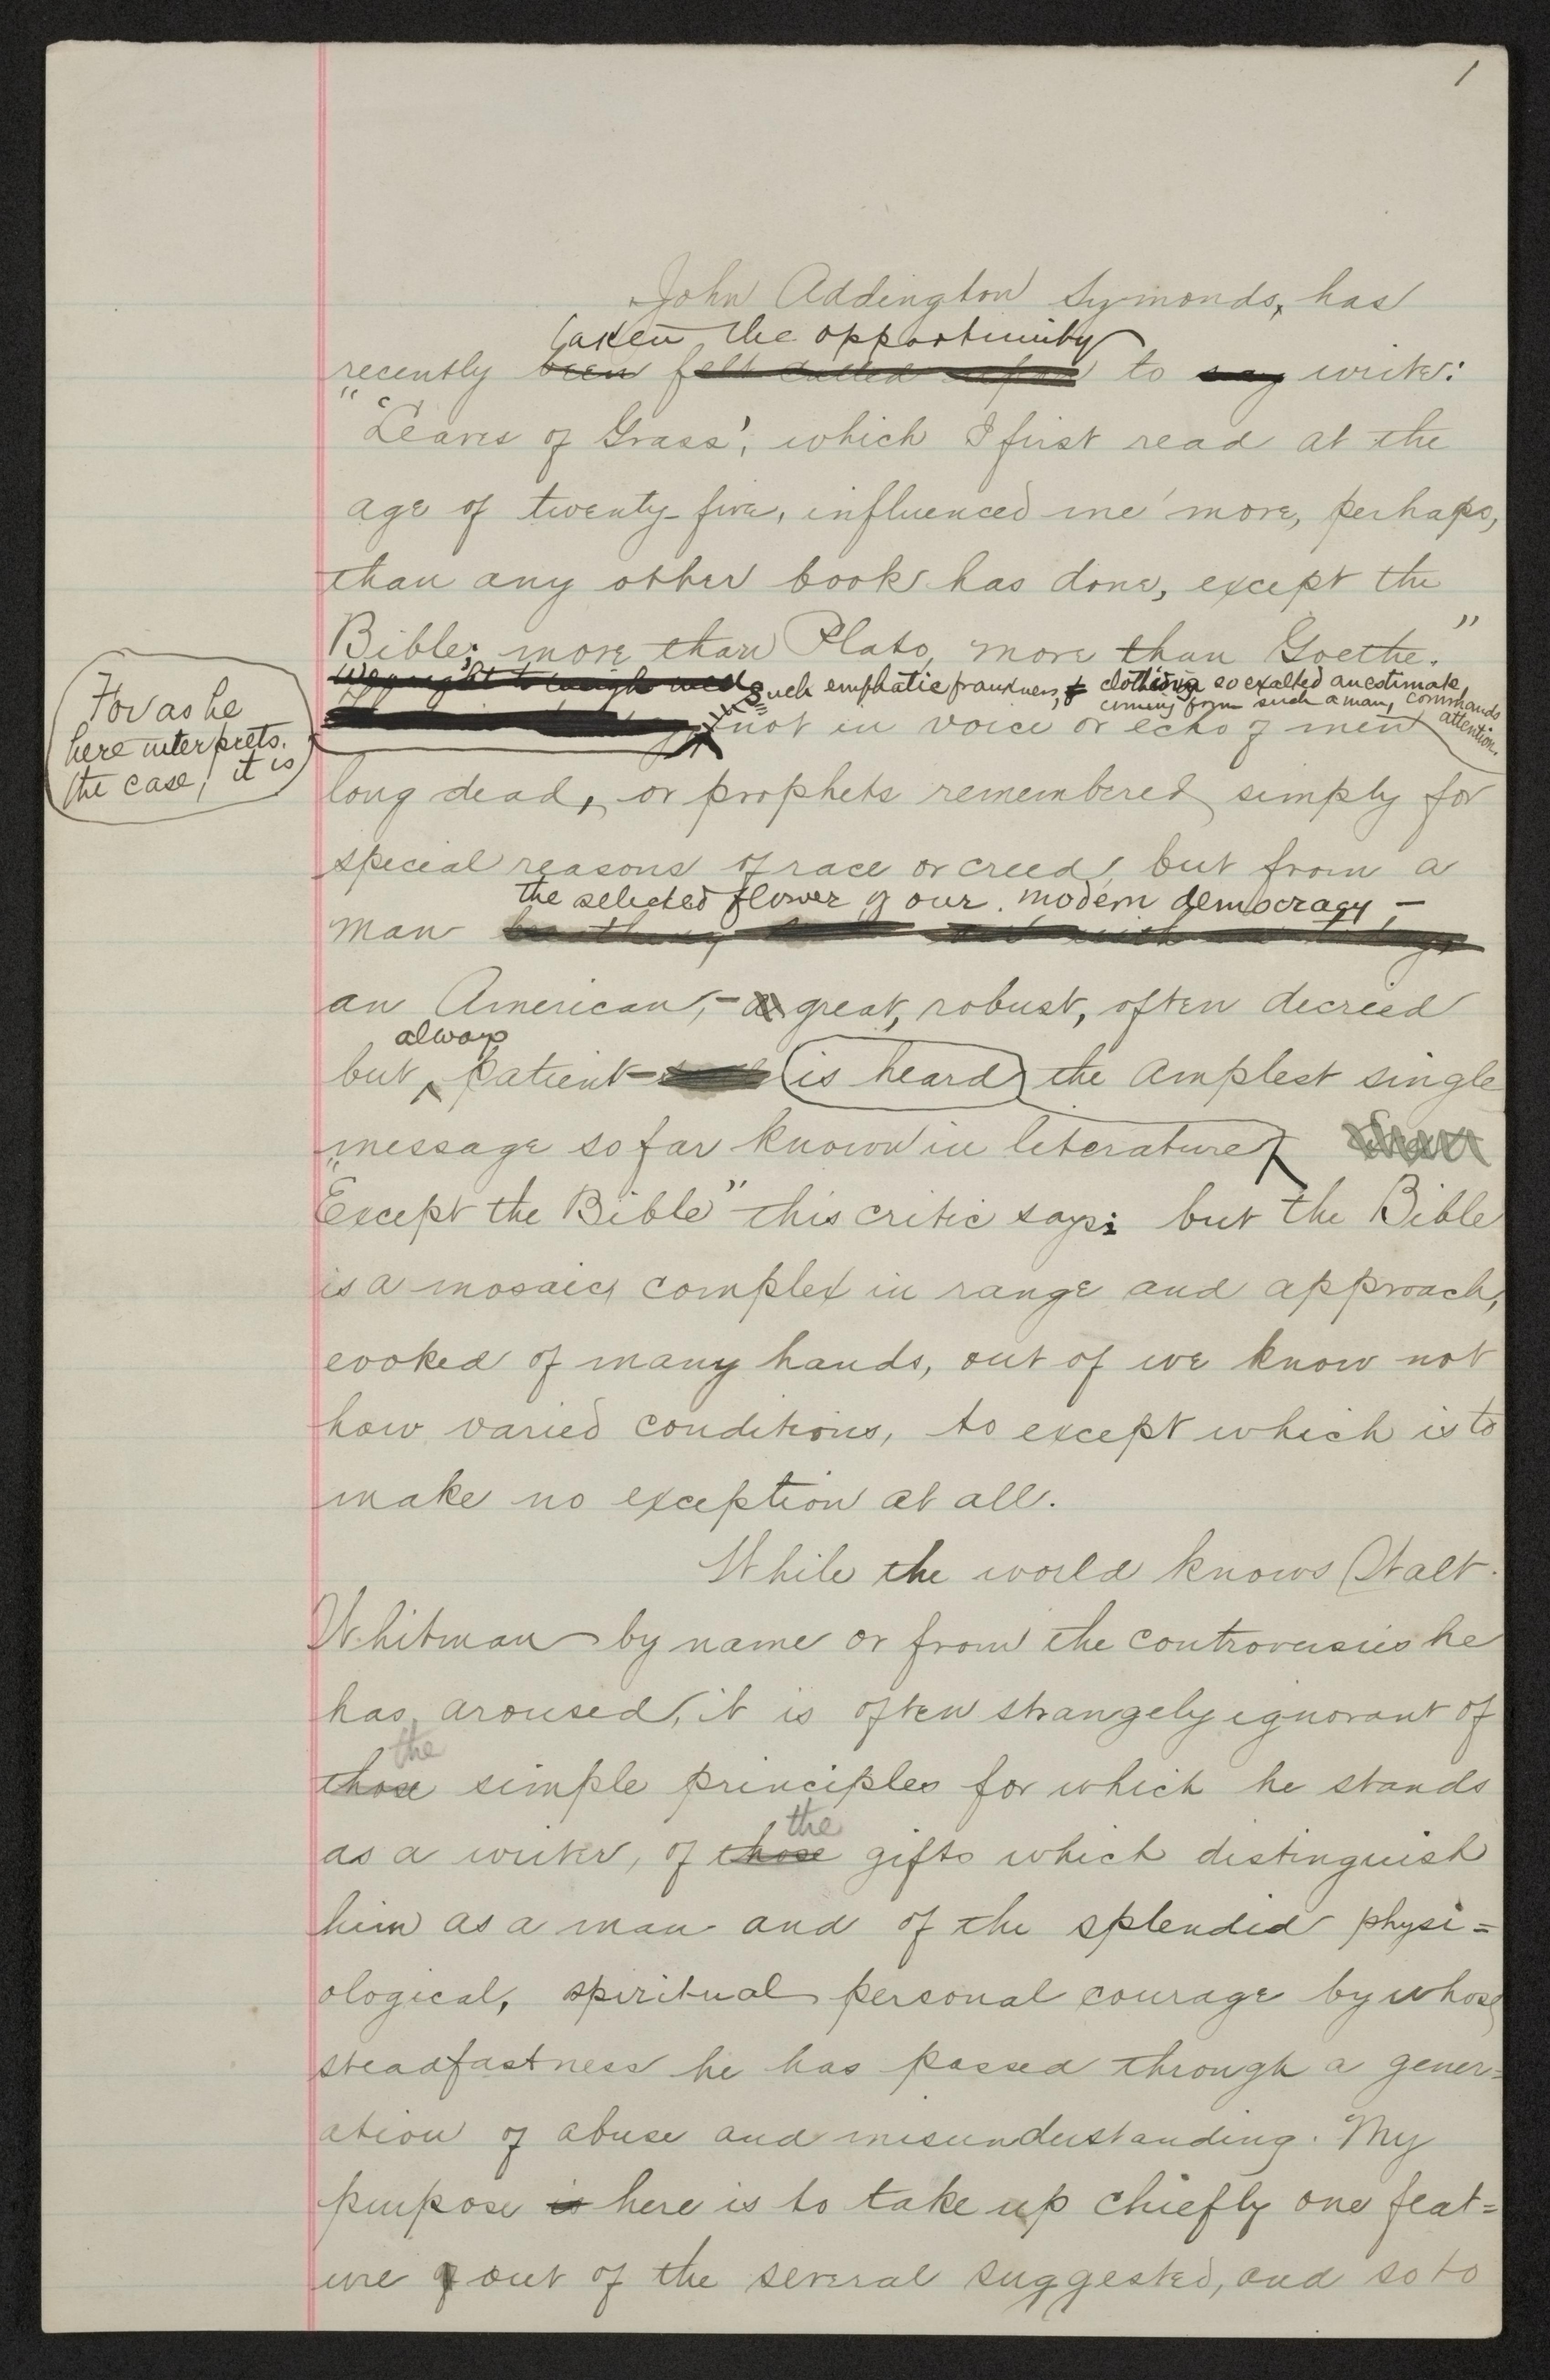 1
John Addington Symonds, has
taken the opportunity
recently been felt called upon to say write:
"'Leaves of Grass', which I first read at the
age of twenty-five, influenced me more, perhaps,
than any other book has done, except the
Bible; more than Plato, more than Goethe."
We ought to weigh well
Such emphatic frankness, clothing so exalted an estimate,
coming from such a man, commands
attention.
For as he
here interprets
the case, it is
not in voice or echo of men
long dead, or prophets remembered simply for
special reasons of race or creed, but from a
the selected flower of our modern democracy —
man
an American,—a great, robust, often decried
always
but patient— is heard the amplest single
message so far known in literature
"Except the Bible" this critic says: but the Bible
is a mosaic, complex in range and approach,
evoked of many hands, out of we know not
how varied conditions, to except which is to
make no exception at all.
While the world knows Walt
Whitman by name or from the controversies he
has aroused, it is often strangely ignorant of
the
those simple principles for which he stands
the
as a writer, of those gifts which distinguish
him as a man and of the splendid physi=
ological, spiritual personal courage by whose
steadfastness he has passed through a gener=
ation of abuse and misunderstanding. My
purpose is here is to take up chiefly one feat=
ure of out of the several suggested, and so to